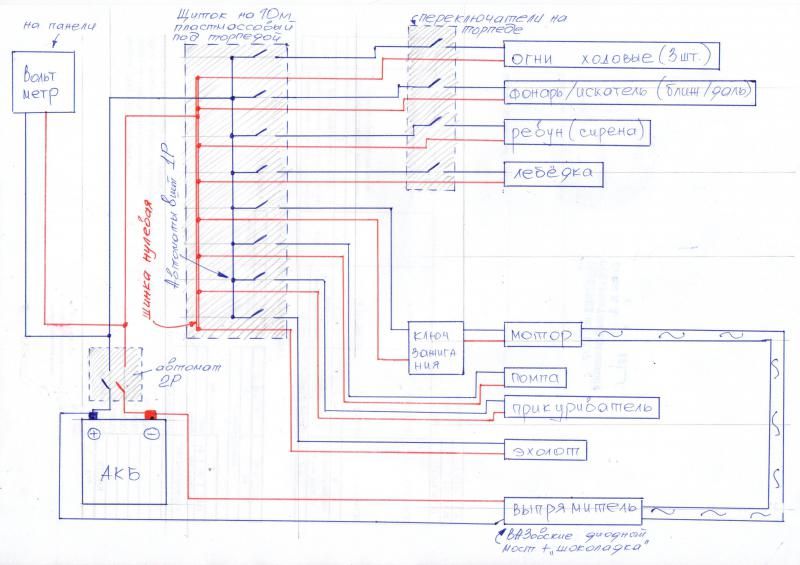 на панели
Вольт
метр
Щиток на 10м
пластмассовый
под торпедой
переключатели на
торпеде
огни ходовые (3шт.)
фонарь/искатель (ближ/даль)
ревун (сирена)
лебёдка
шинка нулевая
Автоматы 8шт 1Р
ключ
зажига
ния
мотор
помпа
прикуриватель
эхолот
автомат
2Р
+
−
АКБ
выпрямитель
ВАЗовские диодной
мост + "шоколадка"